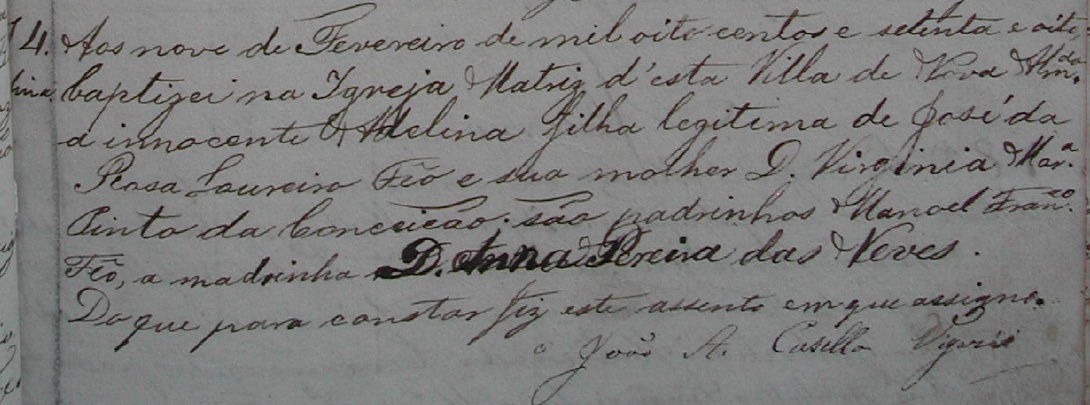 14. Aos nove de Fevereiro de mil oito centos e setenta e oito
lina. baptizei na Igreja Matriz d'esta Villa de Nova Alm.da
a innocente Adelina filha legitima de José da
Rosa Loureiro Feò e sua molher D. Virginia Mar.a
Pinto da Conceicão. são padrinhos Manoel Fran.co
Feò, a madrinha D. Anna Pereira das Neves.
Do que para constar fiz este assento em que assigno.
o João A. Casella Vigario